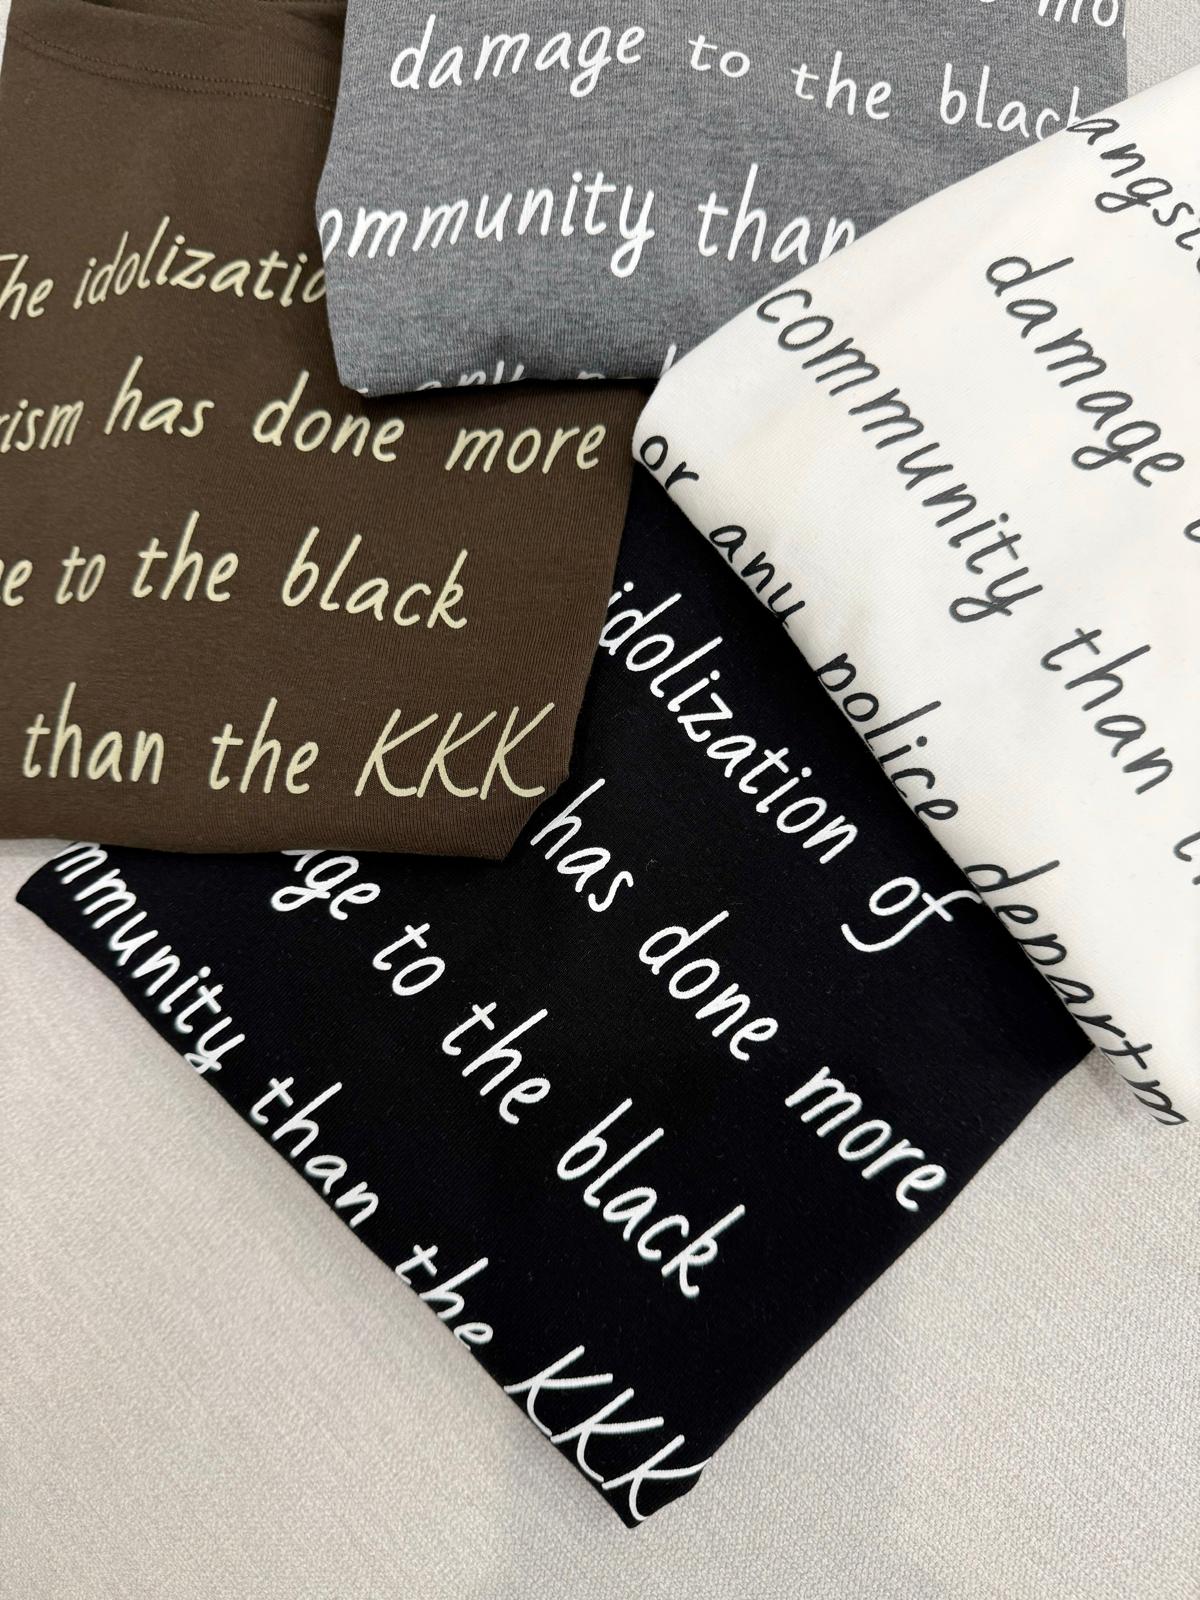 The idolizatio
rism has done more
e to the black
than the KKK
mo
damage to the black
ommunity than
any
angst
damage
community than
or any police departm
idolization of
has done more
age to the black
mmunity than the KKK